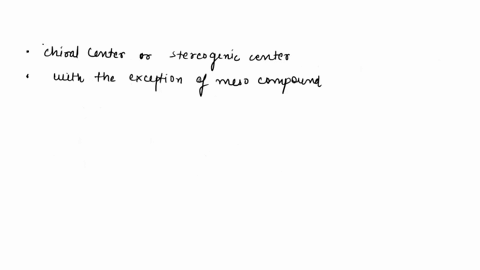 • chiral center or stereogenic center
• with the exception of meso compound